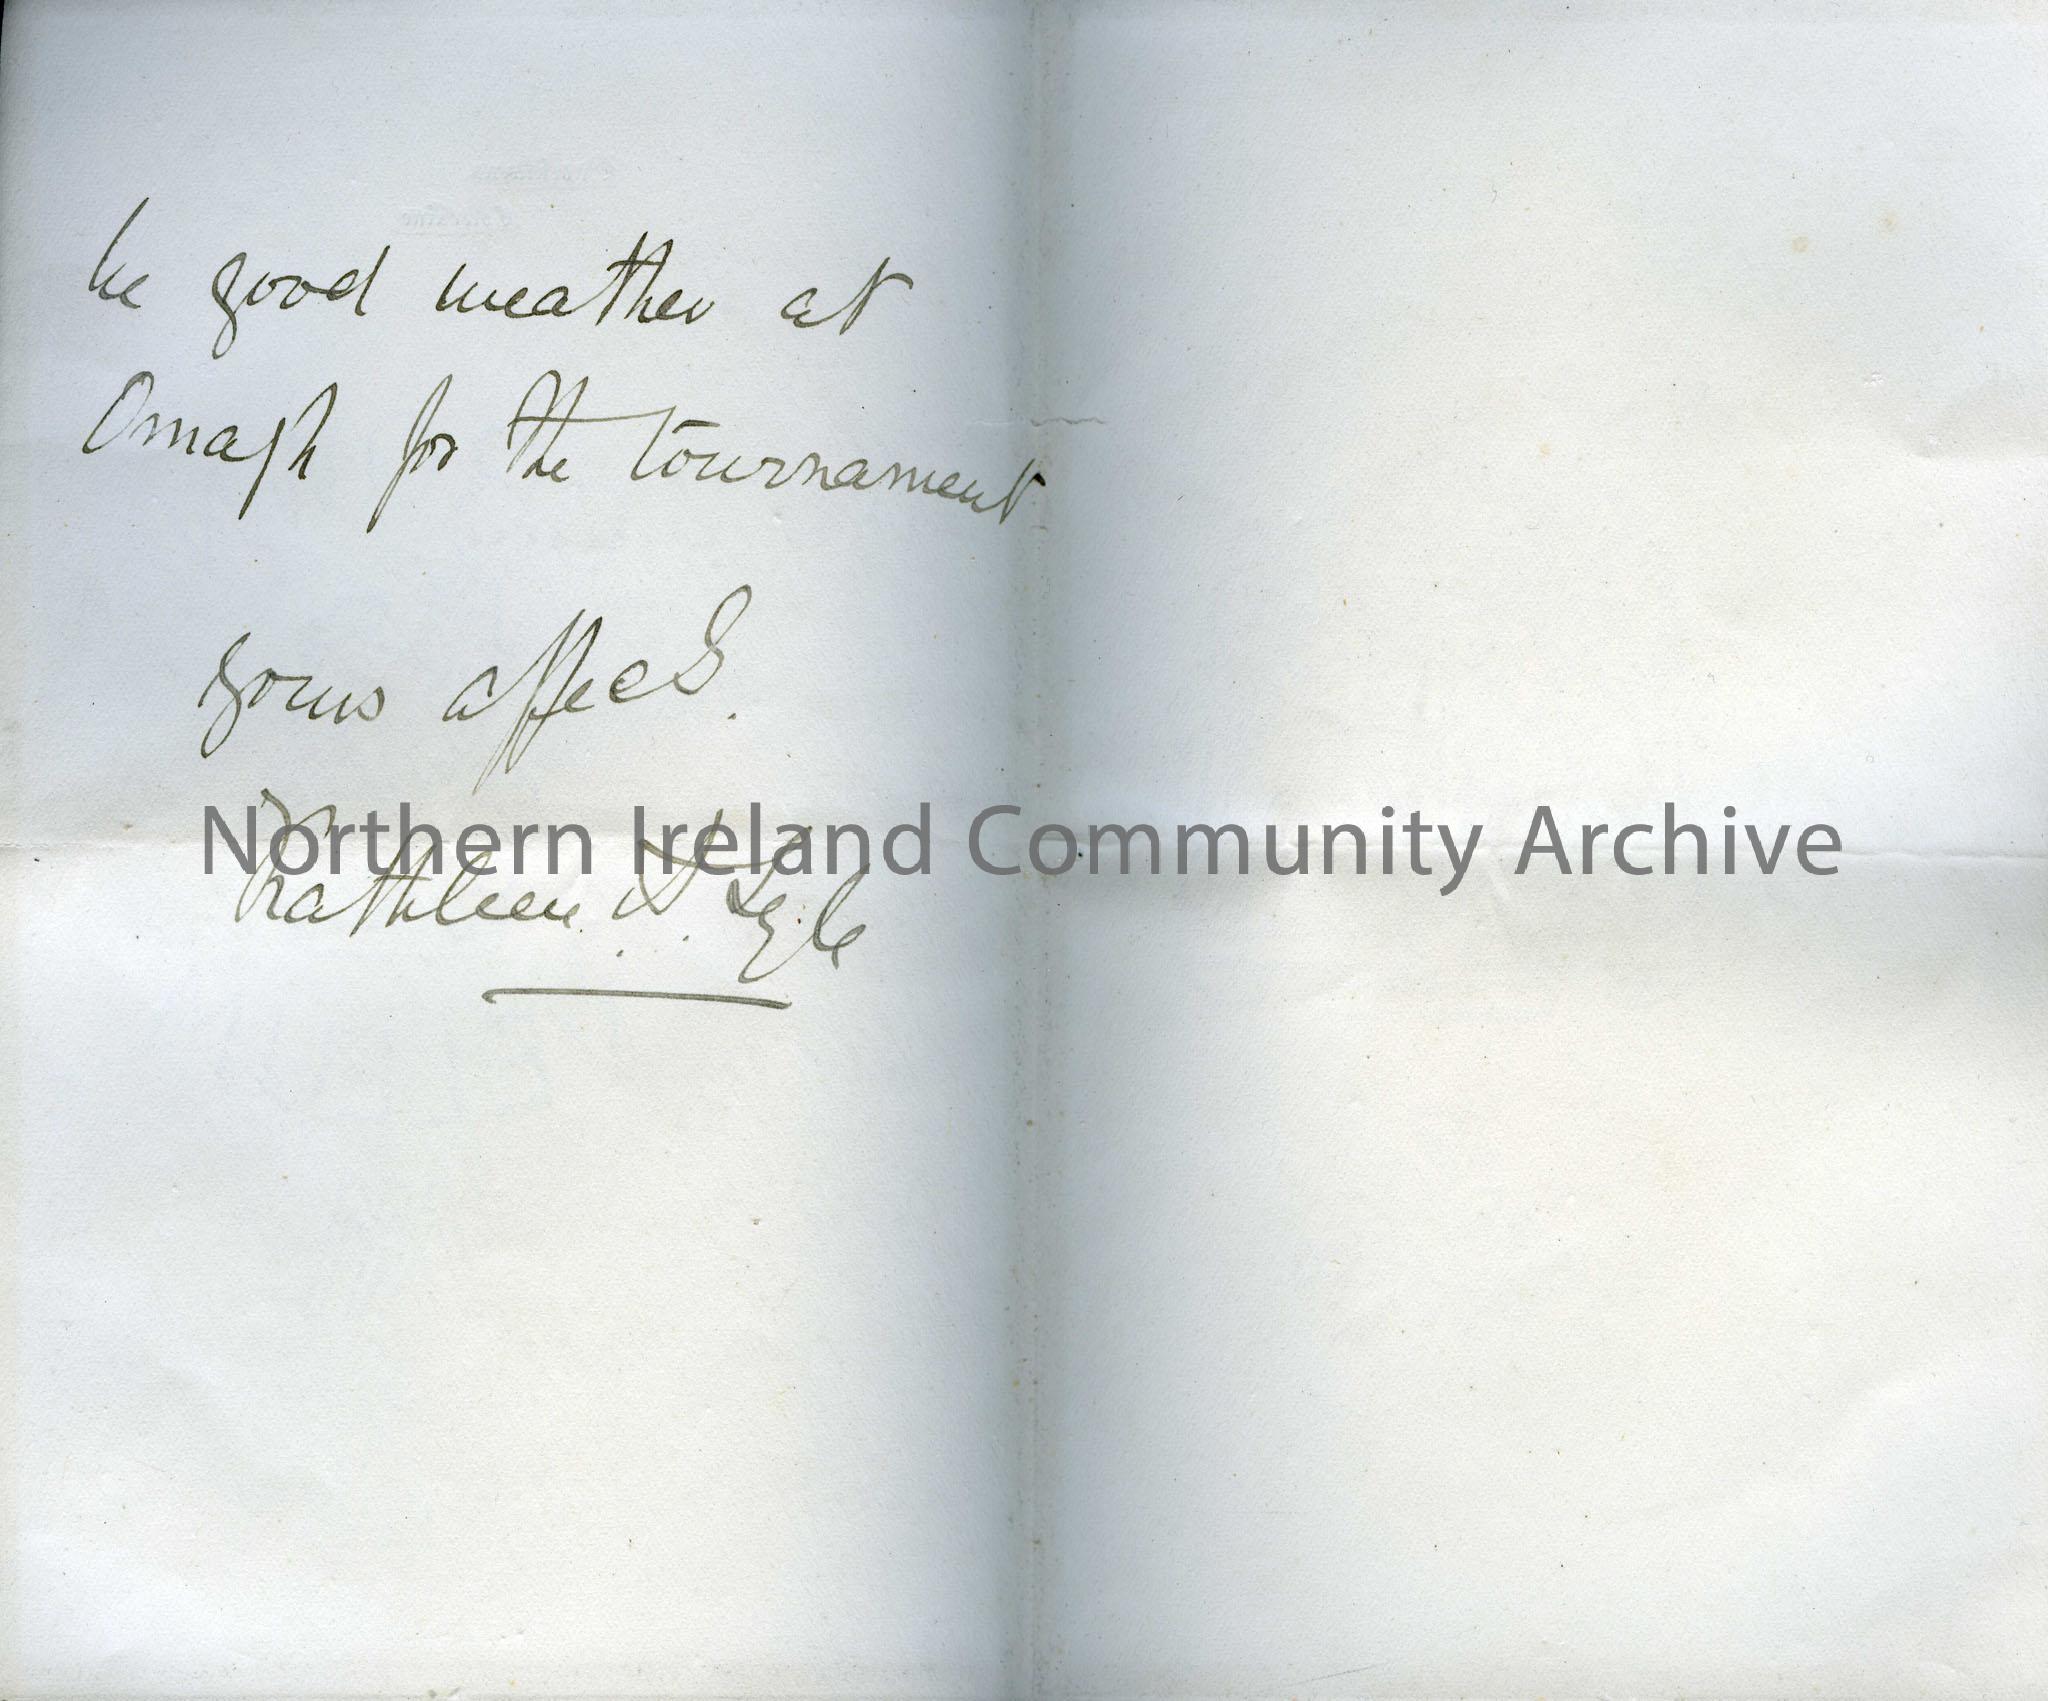 be good weather at
Omagh for the tournament
yours affec
Kathleen Lyle
Northern Ireland Community Archive